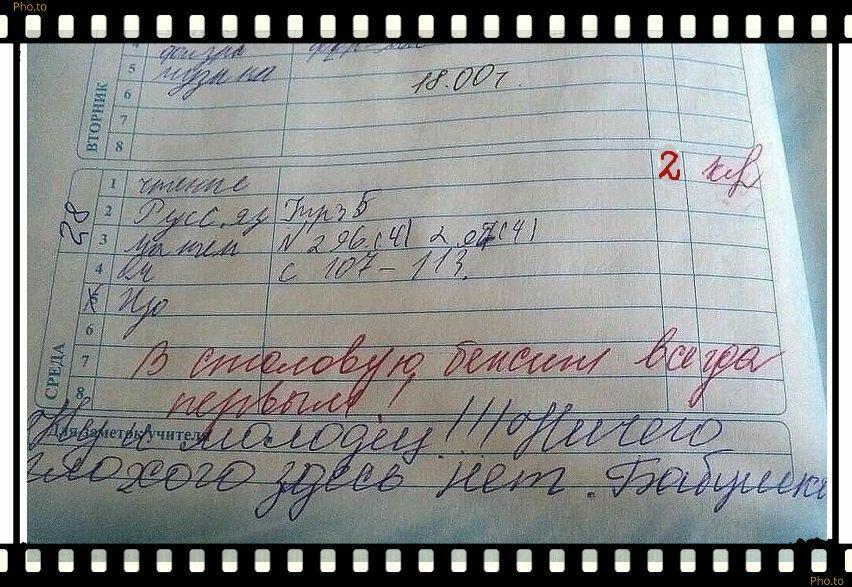 Pho.to
физра
5 музыка
18.00 г.
6
7
8
ВТОРНИК
28
1 чтение 2
2 Русс. яз Упр 5
3 матем N 296 (4) 297 (4)
4 с 107 - 113
5 Изо
6
7 В столовую, бежит всегда
8 первым!
СРЕДА
Для заметок учителя
Ну и молодец!!! Ничего
плохого здесь нет. Бабушка
Pho.to